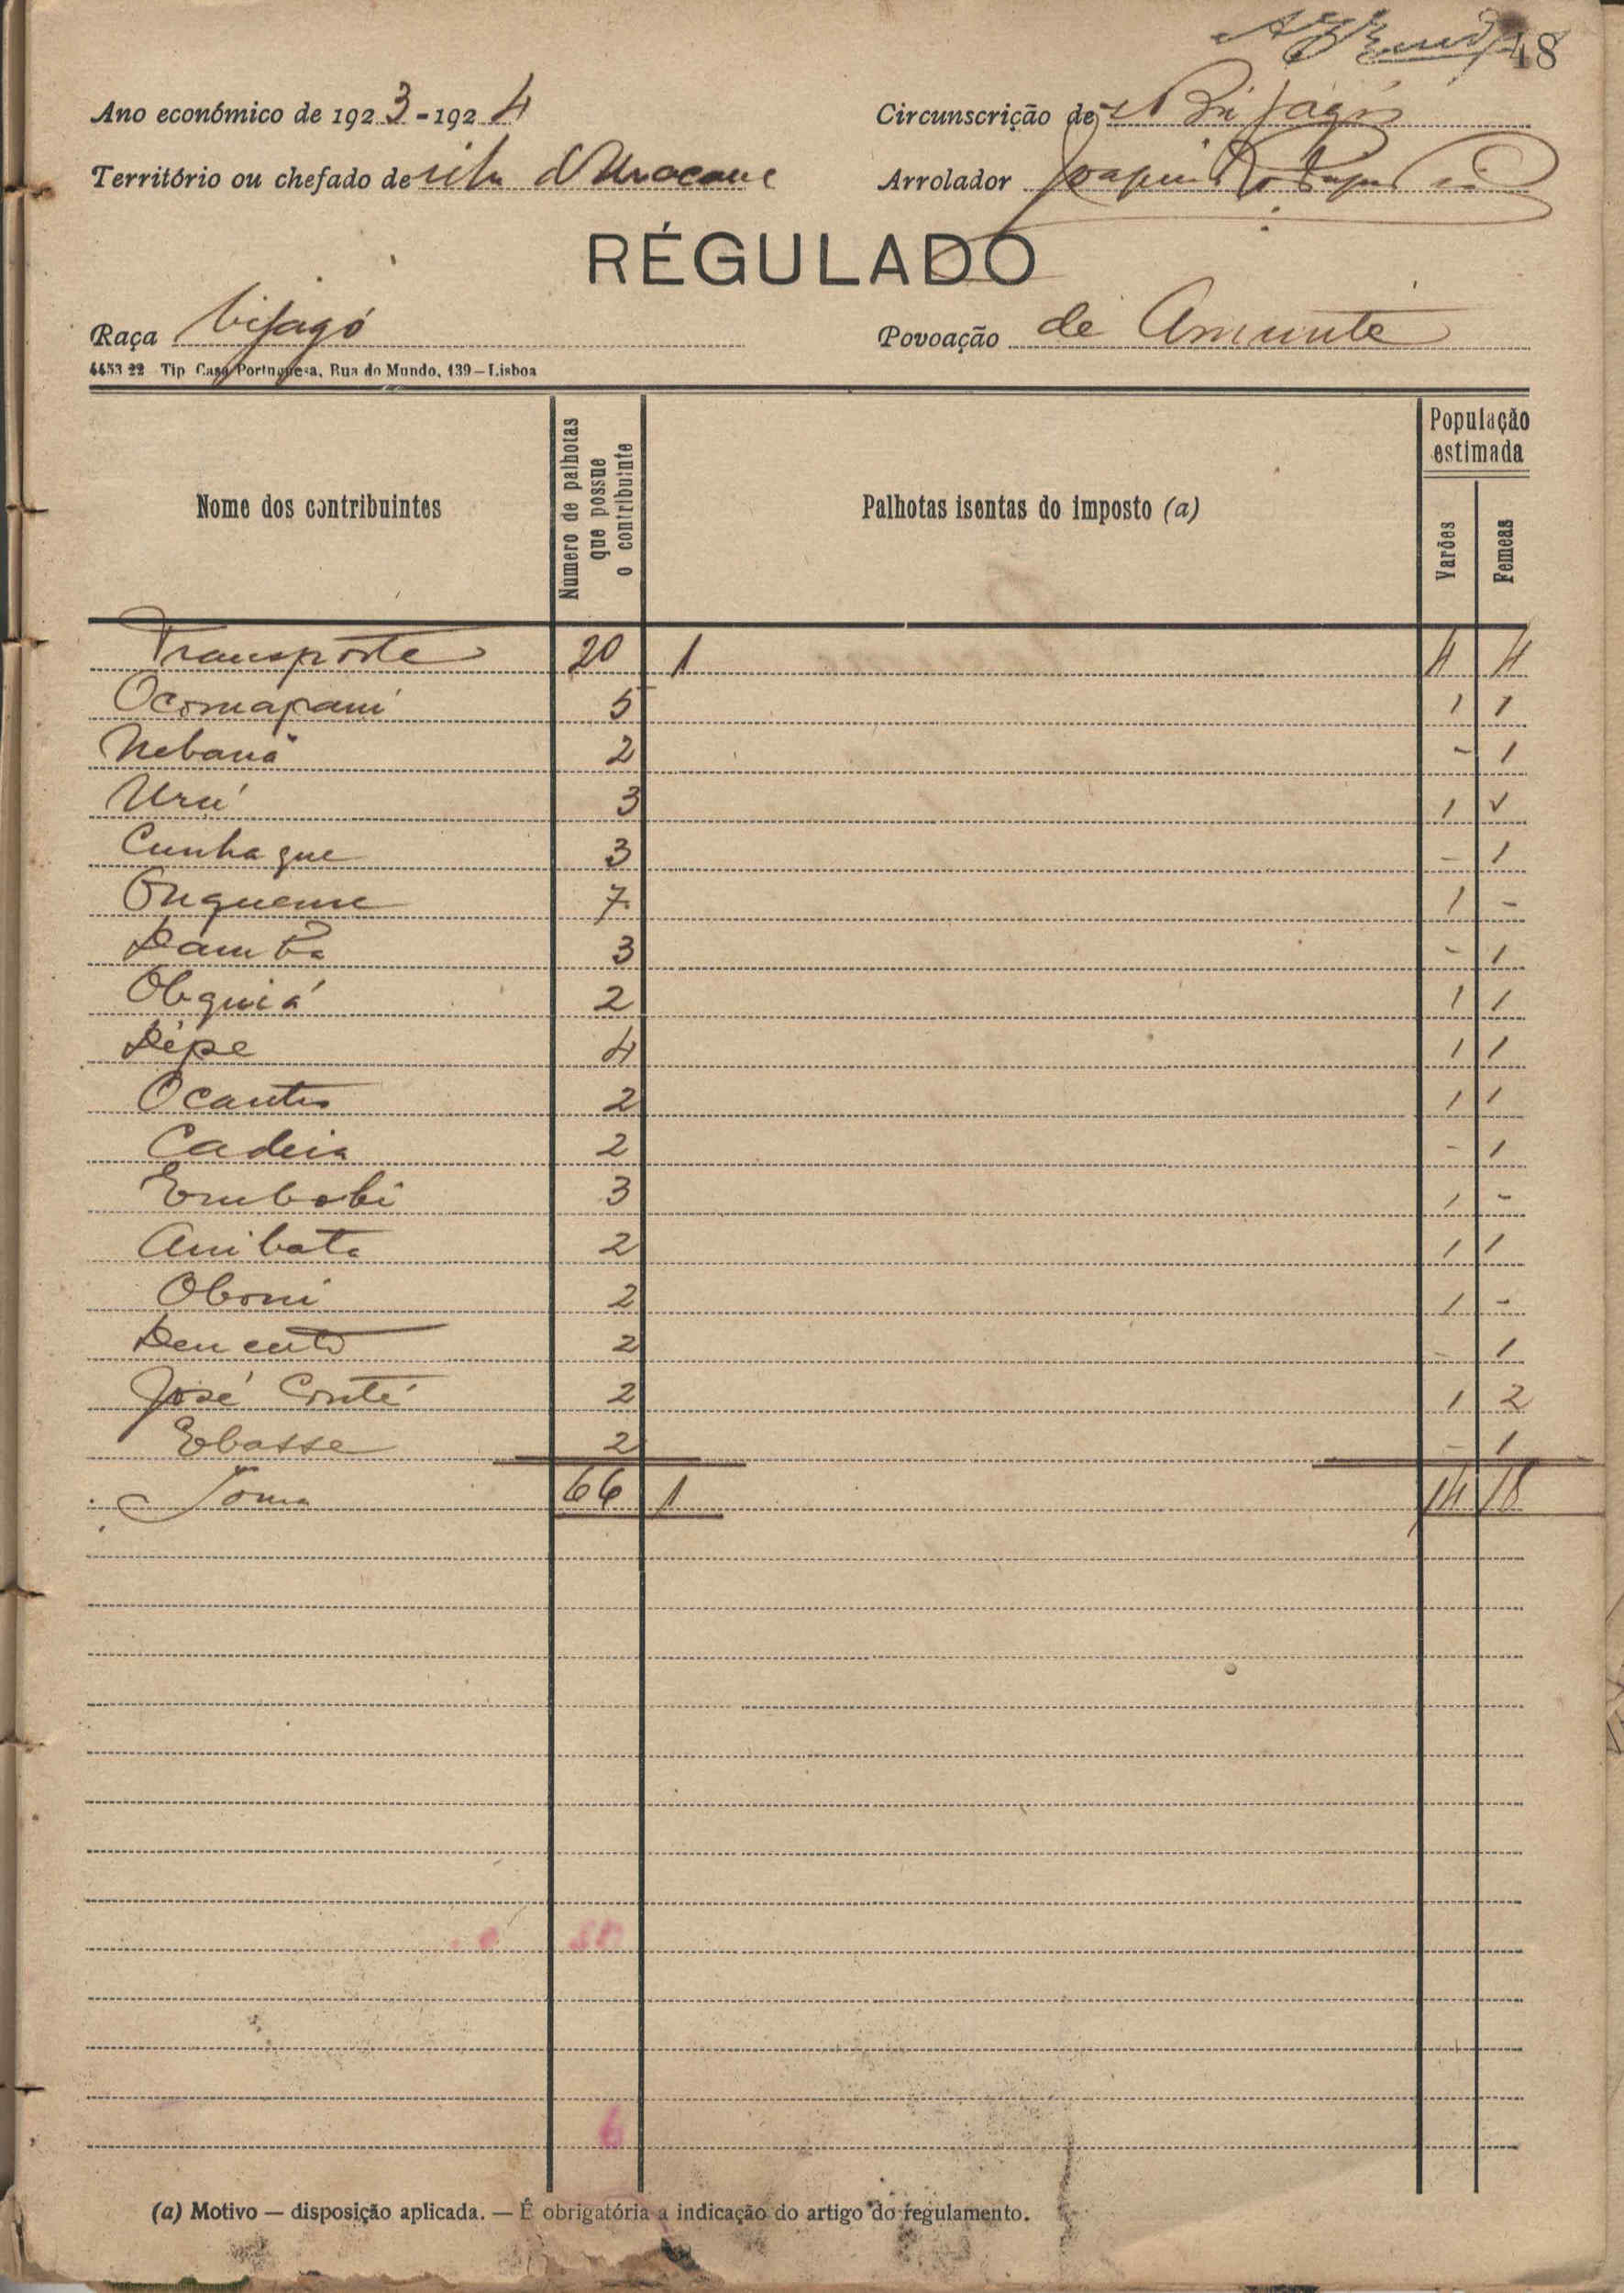 48
Ano económico de 1923-1924
Circunscrição de Bijagós
Território ou chefado de ilha d'Uracane
Arrolador Joaquim
RÉGULADO
Raça bijagó
Povoação de Amunte
4453 22 Tip Casa Portuguesa, Rua do Mundo, 139—Lisboa
Nome dos contribuintes
Número de palhotas que possue o contribuinte
Palhotas isentas do imposto (a)
População estimada
Varões
Femeas
Transporte 20 1 4 4
Ocomapami 5 1 1
Nebana 2 - 1
Urú 3 1 √
Cunhague 3 - 1
Onqueme 7 1 -
Damba 3 - 1
Obquiá 2 1 1
Pépe 4 1 1
Ocanto 2 1 1
Cadeia 2 - 1
Embobi 3 1 -
Anibata 2 1 1
Oboni 2 1 -
2 - 1
José Conté 2 1 2
Ebasse 2 - 1
Soma 66 1 14 18
6
(a) Motivo — disposição aplicada. — É obrigatória a indicação do artigo do regulamento.